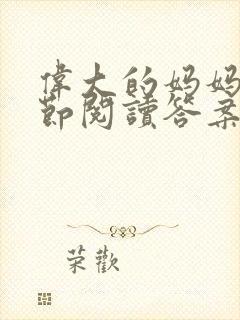 偉大的妈妈
節閱讀答案
荣歡